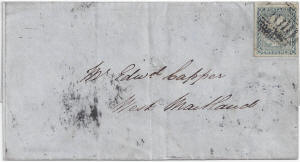 Mr Edwd Capper
West Maitland